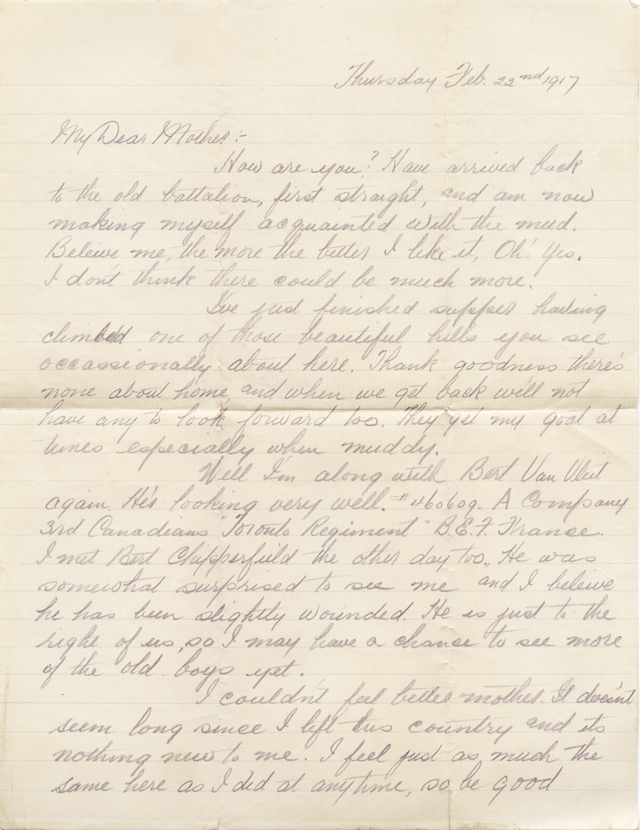 Thursday Feb. 22nd 1917
My Dear Mother:-
How are you? Have arrived back
to the old battalion, first straight, and am now
making myself acquainted with the mud.
Beleive me, the more the better I like it, Oh! Yes.
I don't think there could be much more.
I've just finished supper having
climbed one of those beautiful hills you see
occassionally about here. Thank goodness there's
none about home, and when we get back we'll not
have any to look forward too. They get my goat at
times especially when muddy.
Well I'm along with Bert Van Vliet
again. He's looking very well. #460609. A Company
3rd Canadians "Toronto Regiment" B.E.F. France.
I met Bert Chapperfield the other day too. He was
somewhat surprised to see me and I beleive
he has been slightly wounded. He is just to the
right of us, so I may have a chance to see more
of the old boys yet.
I couldn't feel better mother. It doesn't
seem long since I left this country and its
nothing new to me. I feel just as much the
same here as I did at anytime, so be good